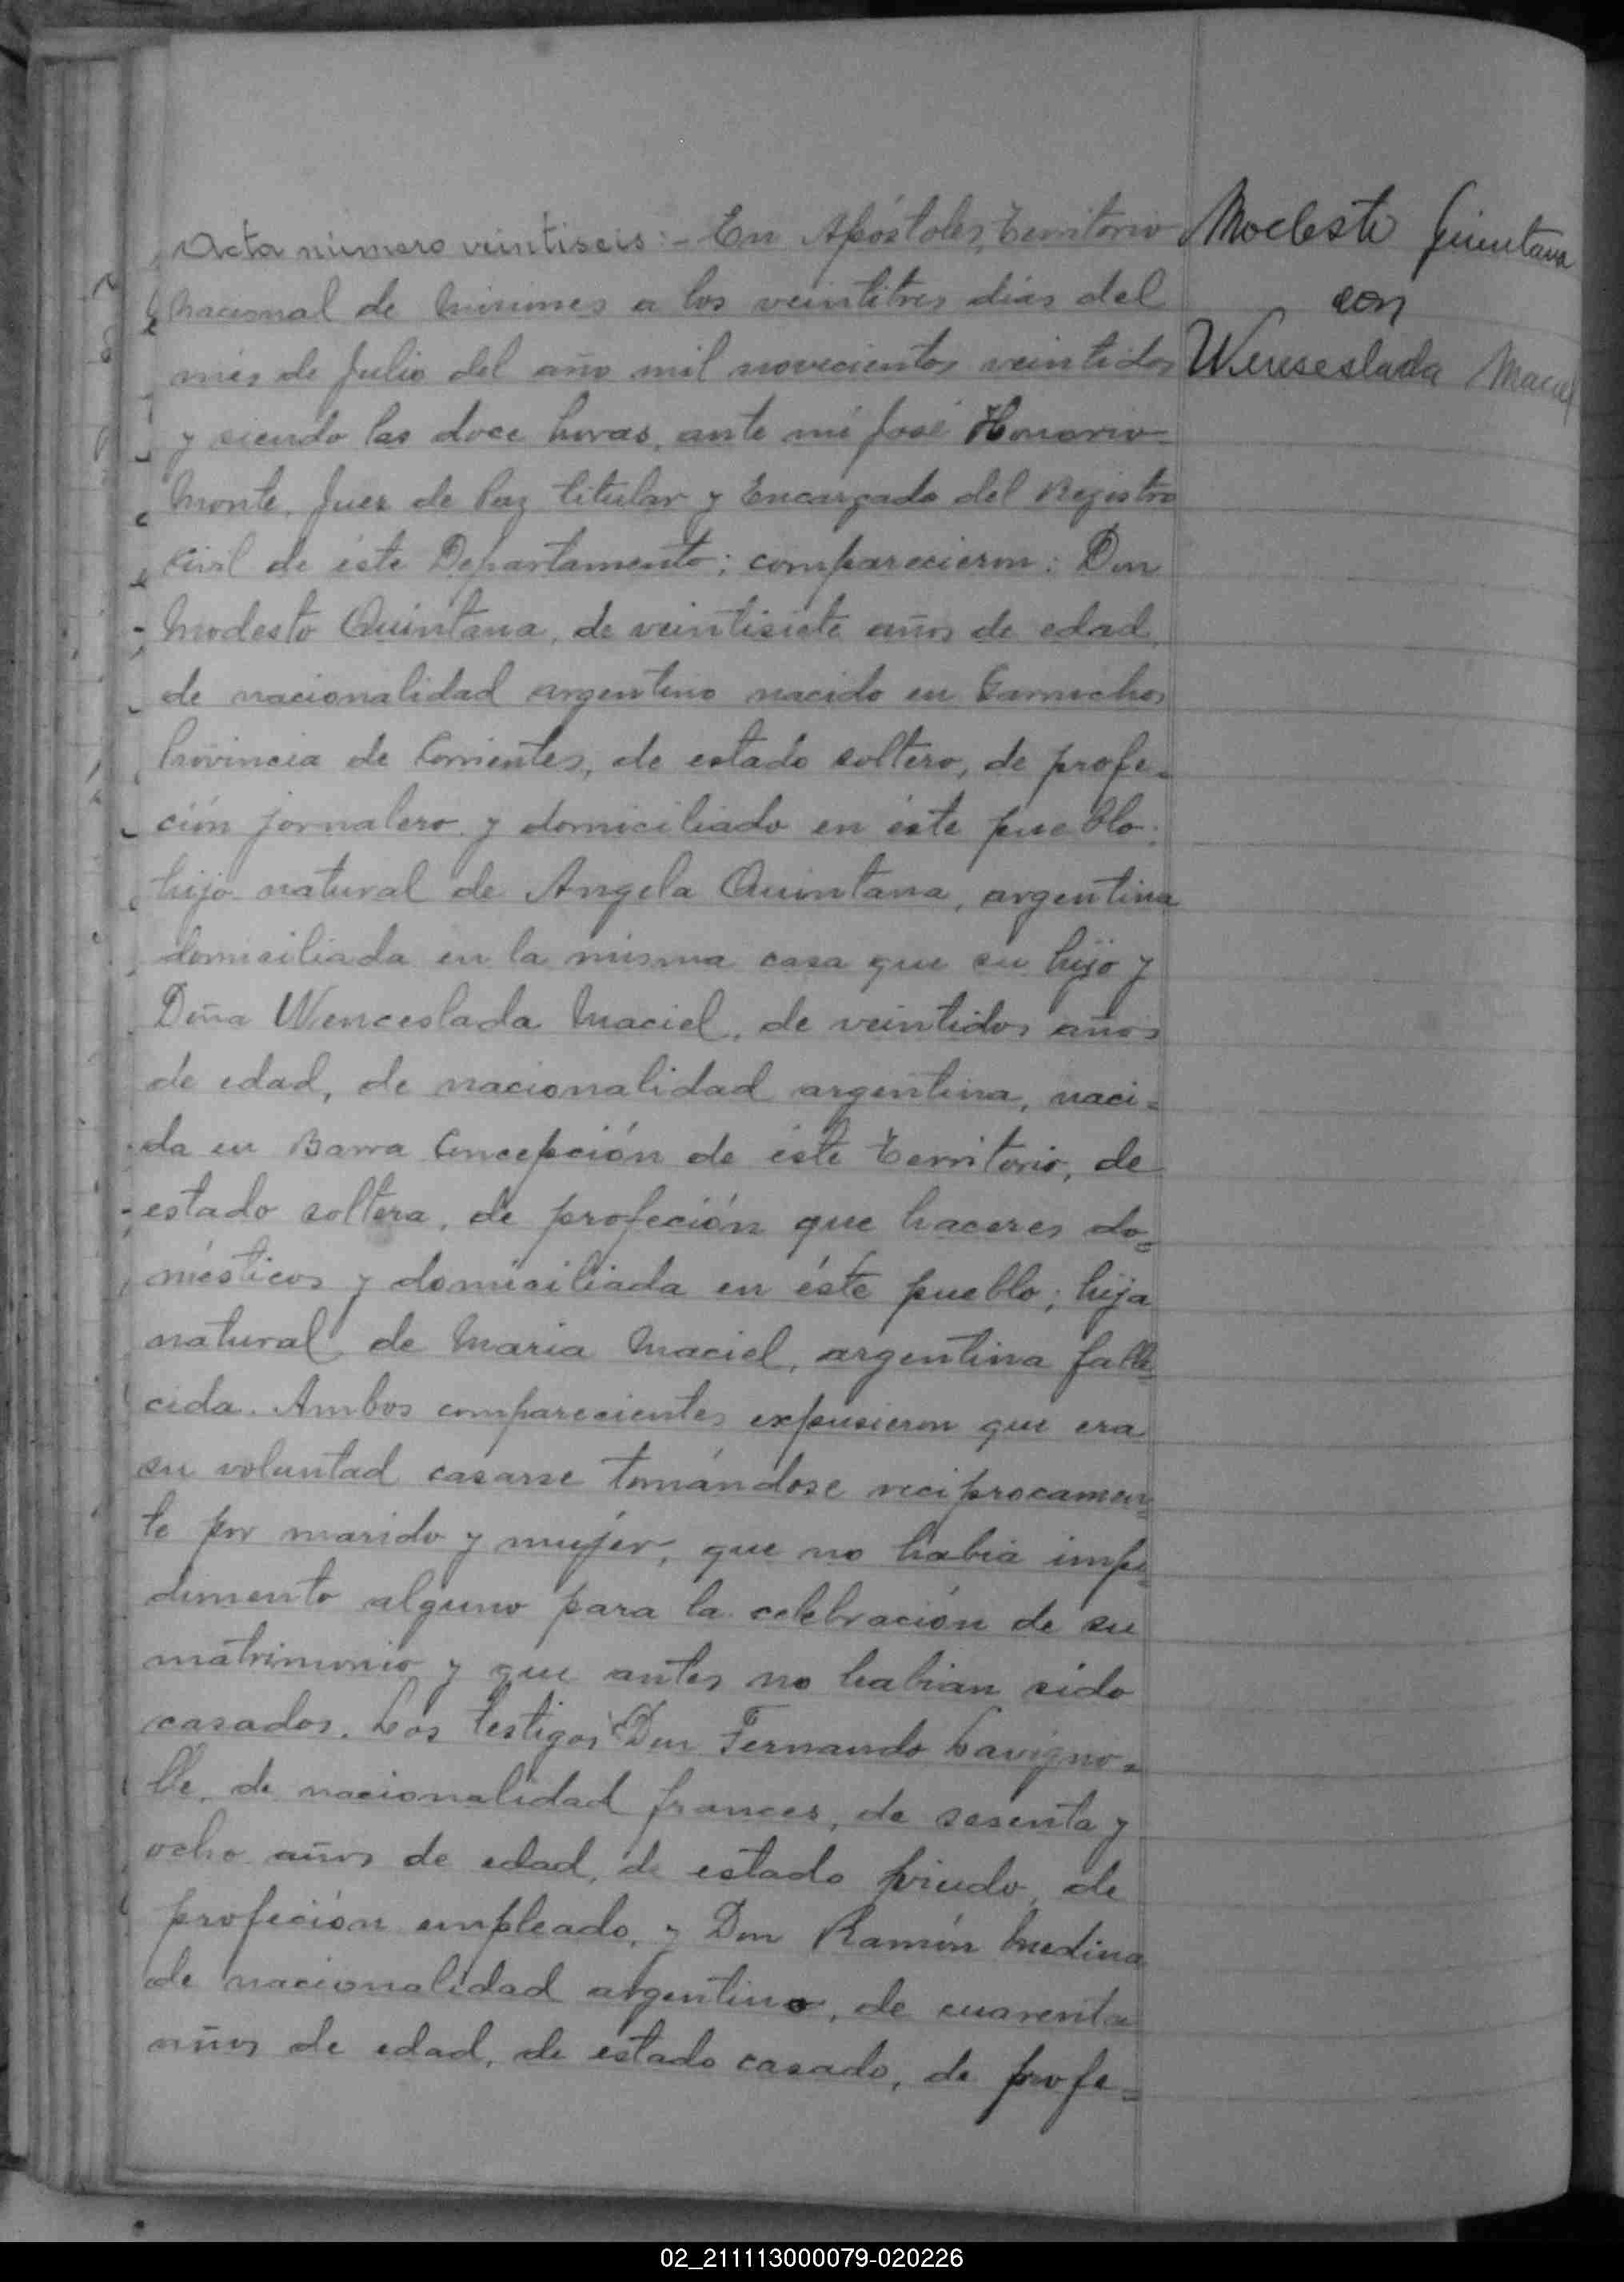 Modesto Quintana
con
Wenseslada Maciel
Acta número veintiseis:- En Apóstoles, Territorio
Nacional de Misiones a los veintitres dias del
més de Julio del año mil novecientos veintidos
y siendo las doce horas, ante mi José Honorio
Monte, Juez de Paz titular y Encargado del Registro
Civil de éste Departamento; comparecieron: Don
Modesto Quintana, de veintisiete años de edad,
de nacionalidad argentino nacido en Garruchos
Provincia de Corrientes, de estado soltero, de profe=
ción jornalero y domiciliado en éste pueblo;
hijo natural de Angela Quintana, argentina
domiciliada en la misma casa que su hijo y
Doña Wenceslada Maciel, de veintidos años
de edad, de nacionalidad argentina, naci=
da en Barra Concepción de éste Territorio, de
estado soltera, de profeción que haceres do=
mésticos y domiciliada en éste pueblo; hija
natural de Maria Maciel, argentina falle=
cida. Ambos comparecientes expusieron que era
su voluntad casarse tomándose reciprocamen=
te por marido y mujer, que no habia impe=
dimento alguno para la celebración de su
matrimonio y que antes no habian sido
casados. Los testigos Don Fernando Lavigno=
lle, de nacionalidad frances, de sesenta y
ocho años de edad, de estado viudo, de
profeción empleado, y Don Ramón Medina
de nacionalidad argentino, de cuarenta
años de edad, de estado casado, de profe=
02_211113000079-020226